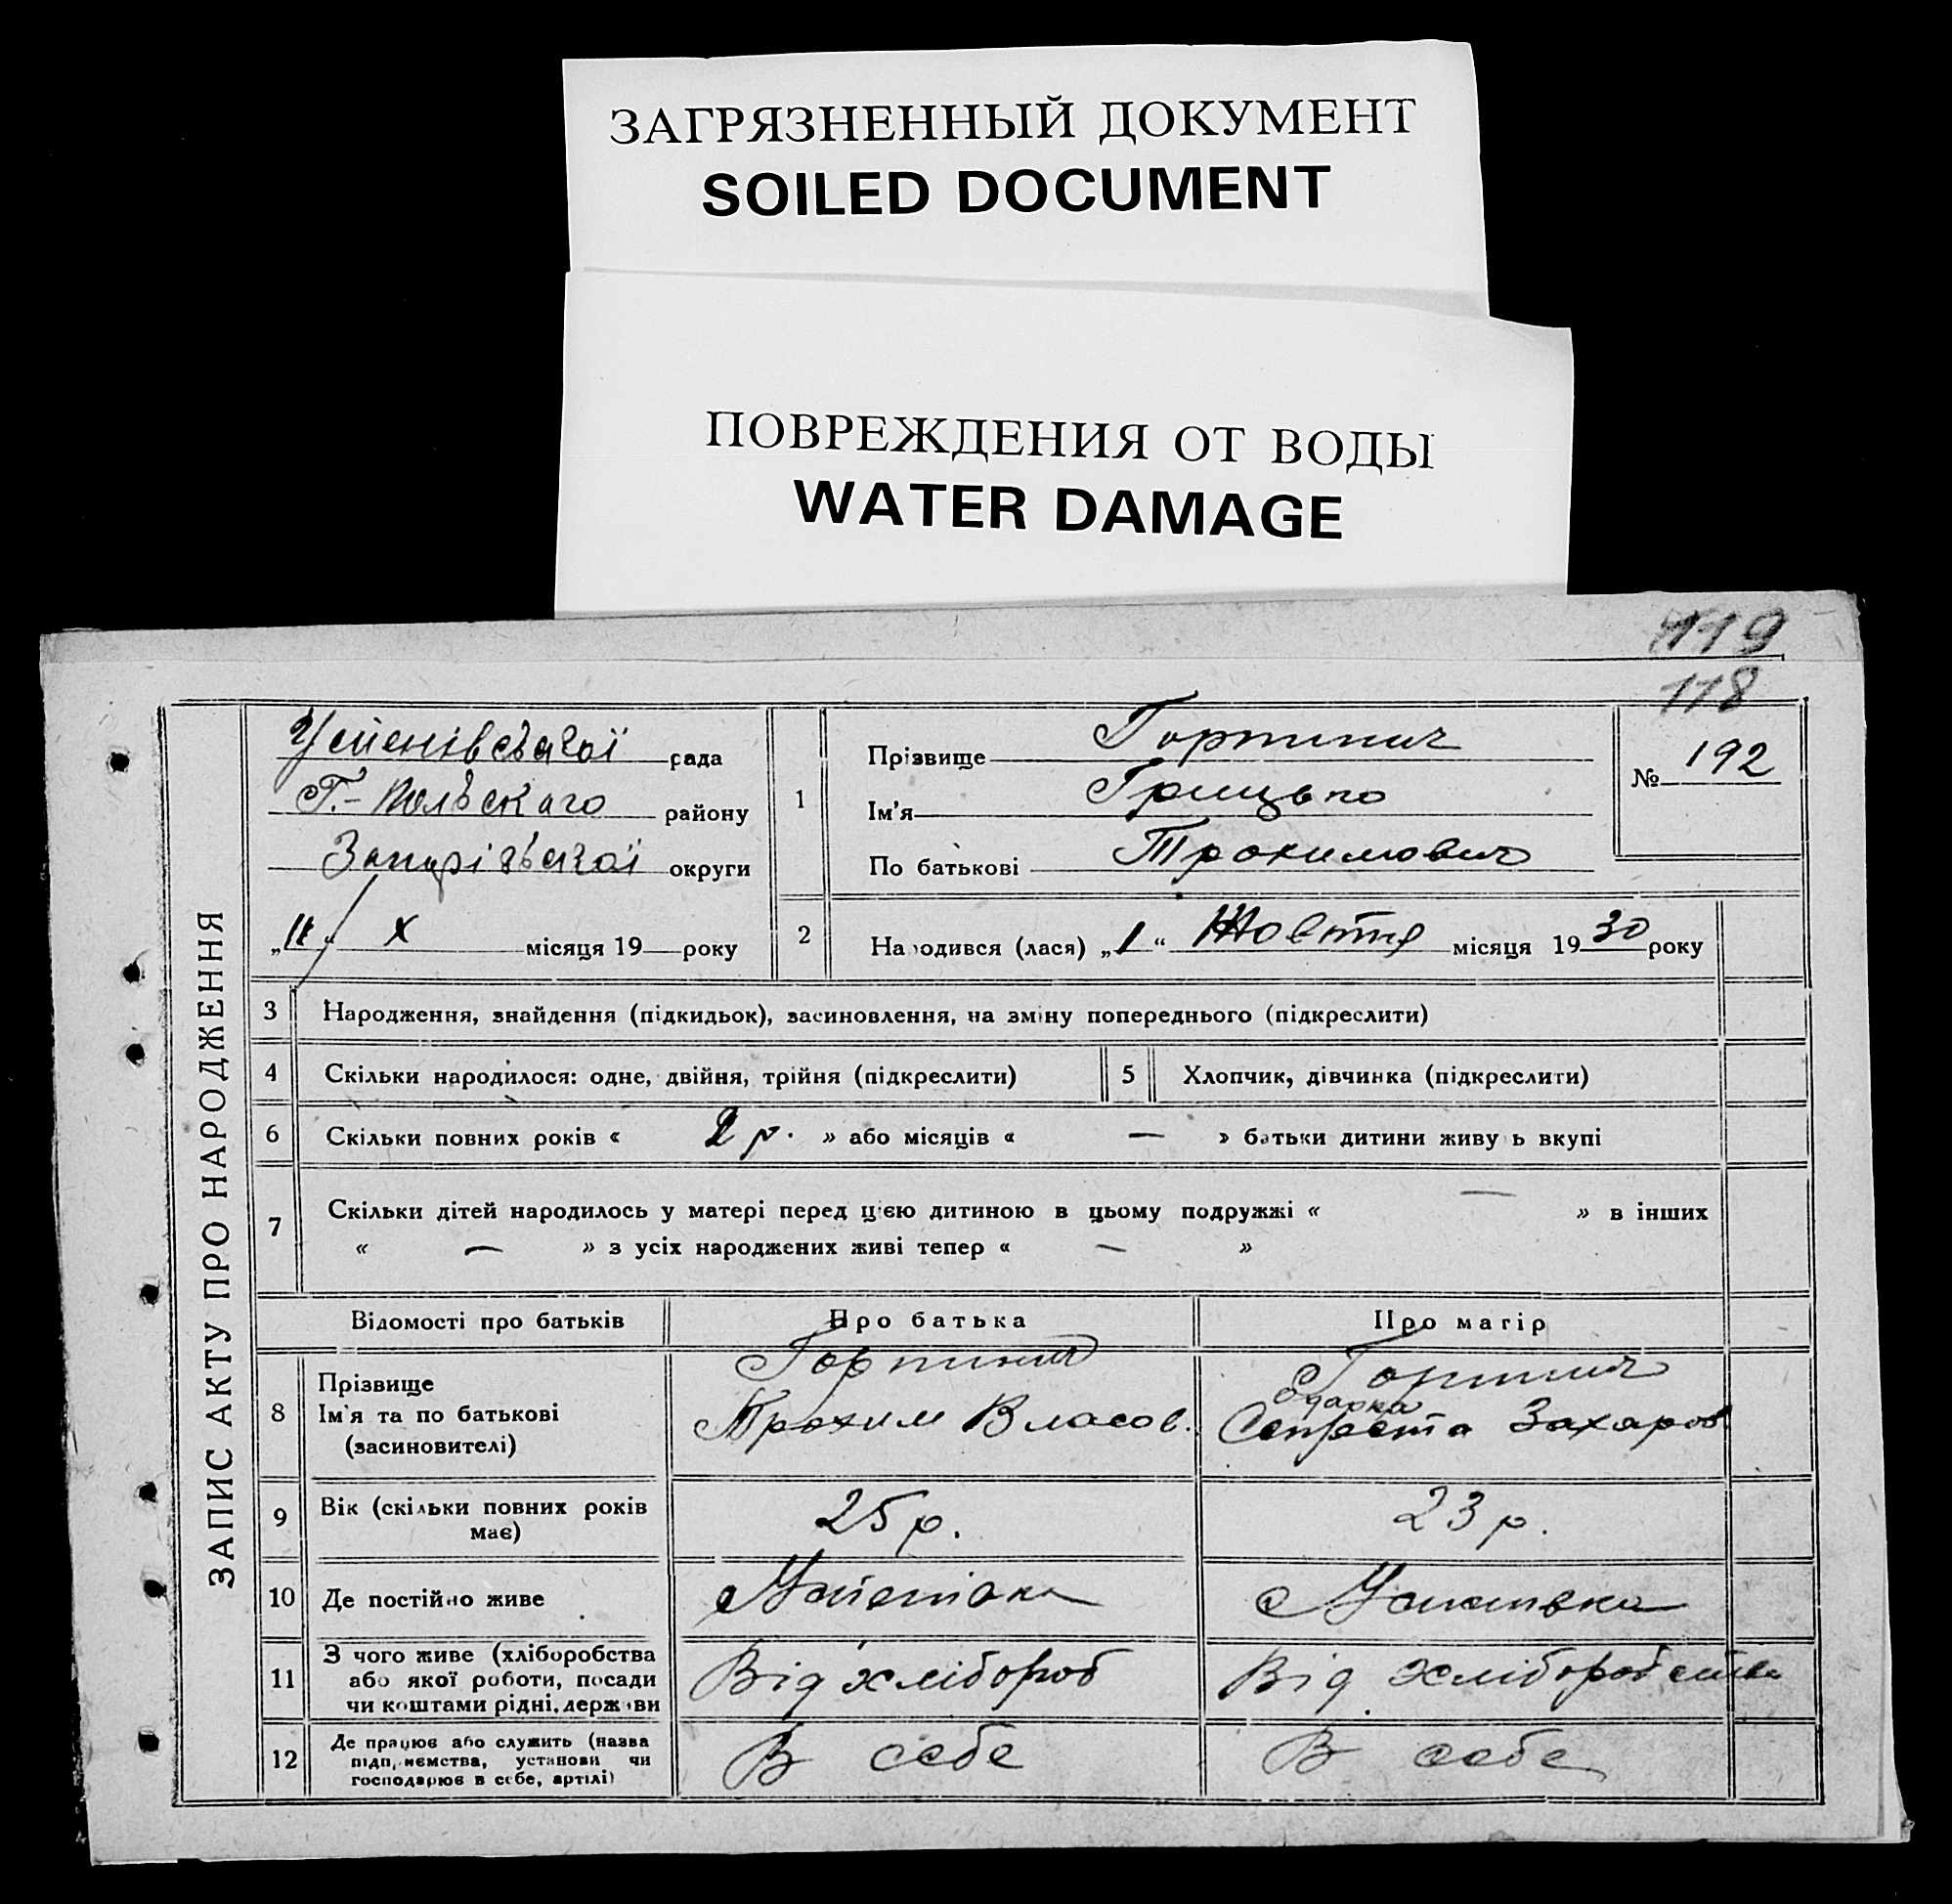 ЗАГРЯЗНЕННЫЙ ДОКУМЕНТ
SOILED DOCUMENT
ПОВРЕЖДЕНИЯ ОТ ВОДЫ
WATER DAMAGE
119
118
ЗАПИС АКТУ ПРО НАРОДЖЕННЯ
Успенівської рада
Г.-Польского району
Запорізької округи
„11“ X місяця 19 року
1
Прізвище Горпинич
Ім'я Грицько
По батькові Трохимович
№ 192
2 Народився (лася) „1“ Жовтня місяця 1930 року
3 Народження, знайдення (підкидьок), засиновлення, на зміну попереднього (підкреслити)
4 Скільки народилося: одне, двійня, трійня (підкреслити) 5 Хлопчик, дівчинка (підкреслити)
6 Скільки повних років « 2 р. » або місяців « — » батьки дитини живуть вкупі
7 Скільки дітей народилось у матері перед цією дитиною в цьому подружжі « — » в інших
« — » з усіх народжених живі тепер « — »
Відомості про батьків Про батька Про матір
8 Прізвище
Ім'я та по батькові
(засиновителі)
Горпинич
Трохим Власов.
Горпинич
Одарка
Захаров
9 Вік (скільки повних років
має)
25 р. 23 р.
10 Де постійно живе Успенівка Успенівка
11 З чого живе (хліборобства
або якої роботи, посади
чи коштами рідні, держави
Від хлібороб Від хліборобства
12 Де працює або служить (назва
підприємства, установи чи
господарює в себе, артілі)
В себе В себе